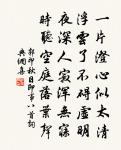 一片澄心似太清
浮雲了不礙虛明
夜深人寂渾無寐
時聽空庭落葉聲
郭印秋日即事八首詞
興國集